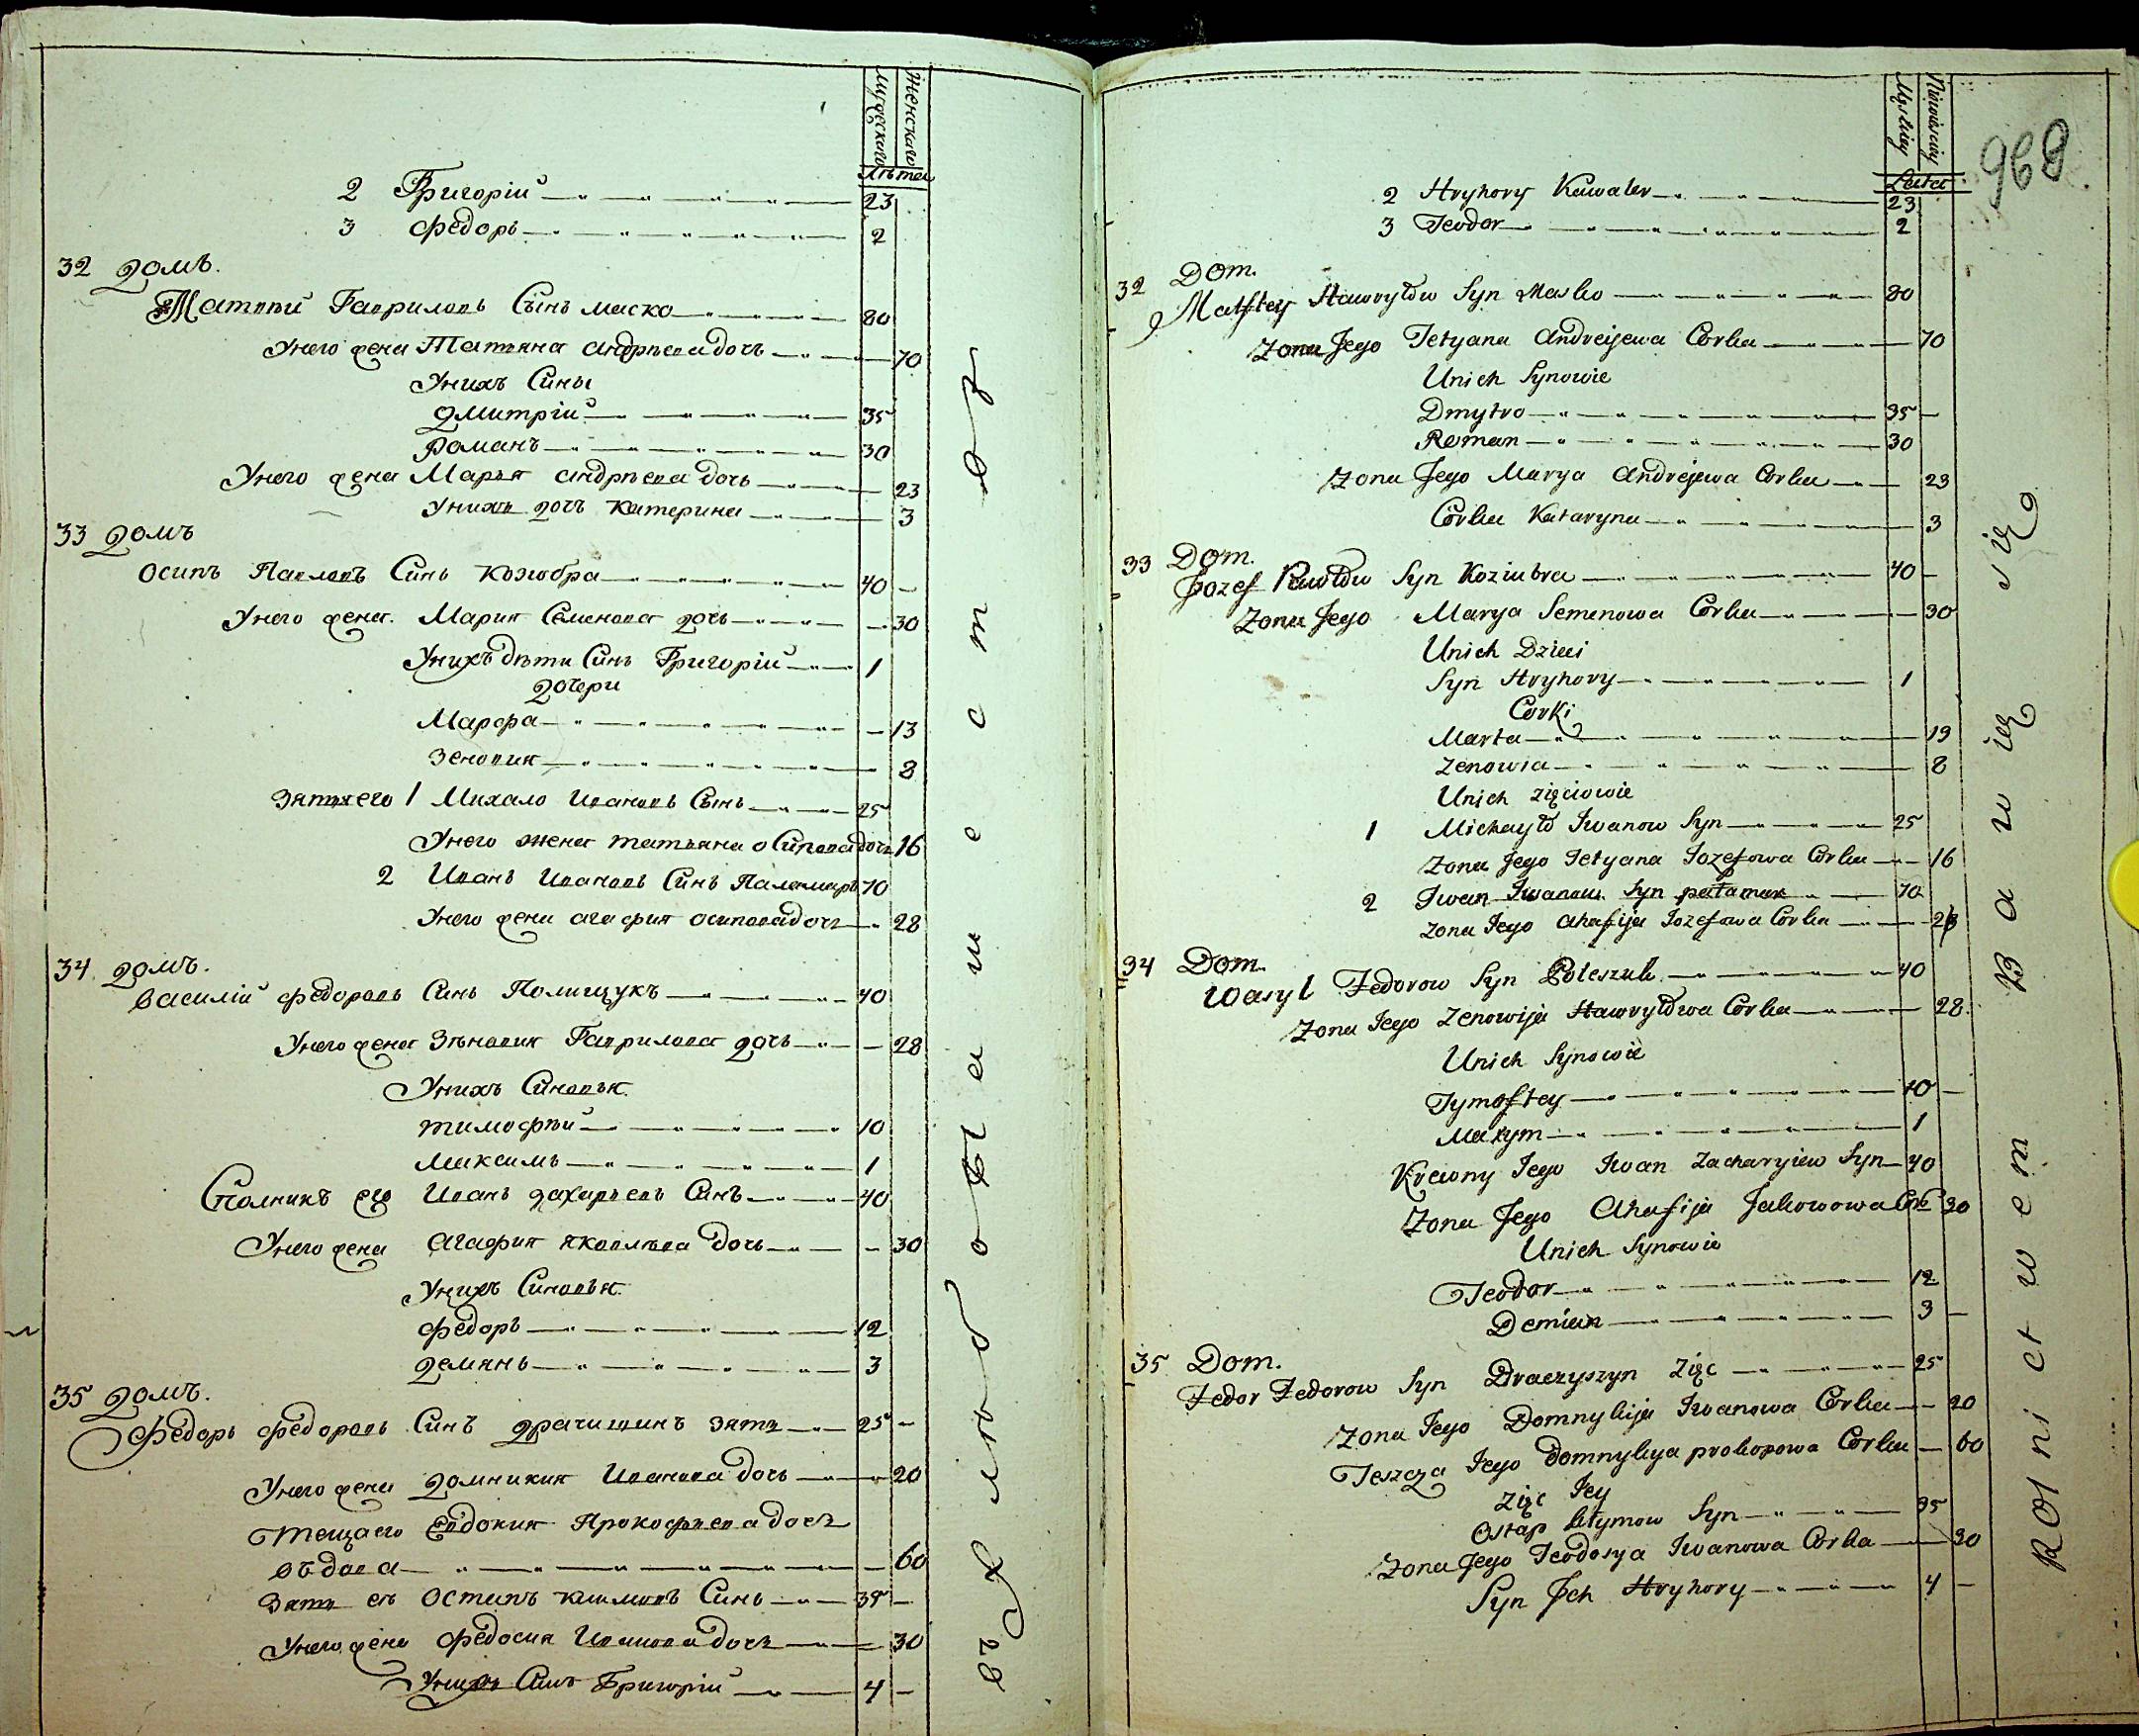 Мужескаго
Женскаго
Лѣта
2 Григорій 23
3 Федоръ 2
32 Домъ.
Матвѣй Гавриловъ Сынъ Маско 80
Унего жена Татьяна Андрѣева дочь 70
Унихъ Сины
Дмитрій 35
Романъ 30
Унего жена Марья Андрѣева дочь 23
Унихъ дочь Катерина 3
33 Домъ
Осипъ Павловъ Синъ Козюбра 40
Унего жена Мария Семенова дочь 30
Унихъ дѣти Синъ Григорій 1
дочери
Марфа 13
Зеновия 8
Зятяего 1 Михало Ивановъ Сынъ 25
Унего жена Татьяна Осипова дочь 16
2 Иванъ Ивановъ Синъ Паламаръ 70
Унего жена Агафия Осипова дочь 28
34 Домъ.
Василій Федоровъ Синъ Полищукъ 40
Унего жена Зѣновия Гаврилова дочь 28
Унихъ Синовья
Тимофѣй 10
Максимъ 1
Сполникъ его Иванъ Захарьевъ Синъ 40
Унего жена Агафия Яковлѣва дочь 30
Унихъ Синовья
Федоръ 12
Демянъ 3
35 Домъ.
Федоръ Федоровъ Синъ Драчишинъ зять 25
Унего жена Домникия Иванова дочь 20
Тещаего Евдокия Прокофьева дочь
въдова 60
Зять еѣ Остапъ Климовъ Синъ 35
Унего жена Федосия Иванова дочь 30
Унихъ Синъ Григорій 4
въ Любовьшместоз
968.
Męskiey
Niewieściey
Lata
2 Hryhory Kawaler 23
3 Teodor 2
32 Dom.
Matftey Hawryłow Syn Masko 80
Zona Jego Tetyana Andreijewa Corka 70
Unich Synowie
Dmytro 35
Roman 30
Zona Jego Marya Andrejewa Corka 23
Corka Kataryna 3
33 Dom.
Jozef Pawłow Syn Koziubra 40
Zona Jego Marya Semenowa Corka 30
Unich Dzieci
Syn Hryhory 1
Corki
Marta 13
Zenowia 8
Unich Zięciowie
1 Michayło Iwanow Syn 25
Zona Jego Tetyana Jozefowa Corka 16
2 Iwan Iwanow Syn pałamar 70
Zona Jego Ahafija Jozefowa Corka 28
34 Dom.
Wasyl Fedorow Syn Poleszuk 40
Zona Jego Zenowija Hawryłowa Corka 28
Unich Synowie
Tymoftey 10
Maxym 1
Krewny Jego Iwan Zacharyiew Syn 40
Zona Jego Ahafija Jakowowa Cork 30
Unich Synowie
Teodor 12
Demian 3
35 Dom.
Fedor Fedorow Syn Draczyszyn Zięc 25
Zona Jego Domnykija Iwanowa Corka 20
Teszcza Jego Domnykya prokopowa Corka 60
Zięc Jey
Ostap Klymow Syn 35
Zona Jego Teodosya Iwanowa Corka 30
Syn Jch Hryhory 4
Rolnictwem Bawią się